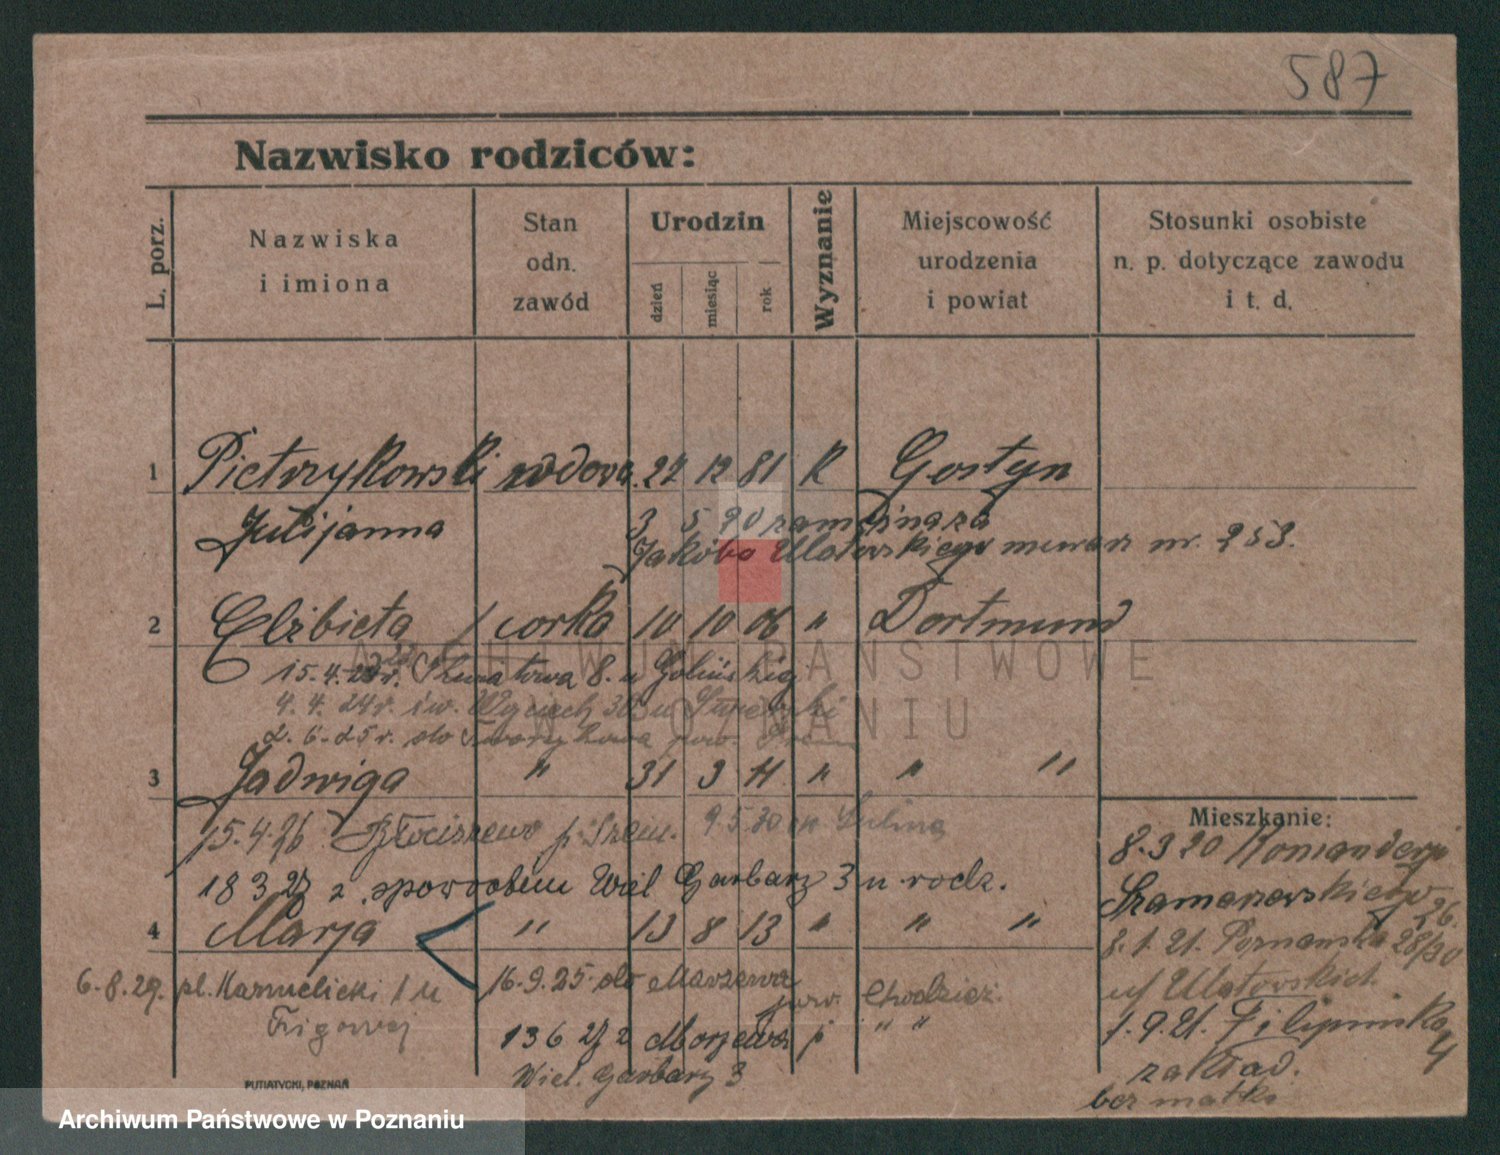 587
Nazwisko rodziców:
L. porz.
Nazwiska
i imiona
Stan
odn.
zawód
Urodzin
dzień
miesiąc
rok
Wyznanie
Miejscowość
urodzenia
i powiat
Stosunki osobiste
n. p. dotyczące zawodu
i t. d.
1 Pietrzykowski wdova 27 12 81 K Gostyn
Julijanna 3 5 20 zam
Jakóba Ulatowskiego nr. 253.
2 Elżbieta / corka 10 10 06 " Dortmund
15.4. 8. u
4. 4. 24 r. św. Wojciech u
2. 6. 25 r. do pow.
3 Jadwiga " 31 3 11 " " "
15.4.26 Błociszewo p. Szem. 9.5.30
18 3 27 z spowrotem Wiel Garbary 3 u rodz.
4 Marja " 13 8 13 " " "
6.8.29. pl. Karmelicki 1 u
16.9.25 do
pow. Chodzież.
13 6 27 z p " "
Wiel. Garbary 3
Mieszkanie:
8.3 20
26.
8.1.21. Poznańska 28/30
u/ Ulatowskich
1.9.21. Filipińska 4
zakład.
bez matki
PUTIATYCKI, POZNAŃ
ARCHIWUM PAŃSTWOWE
W POZNANIU
Archiwum Państwowe w Poznaniu